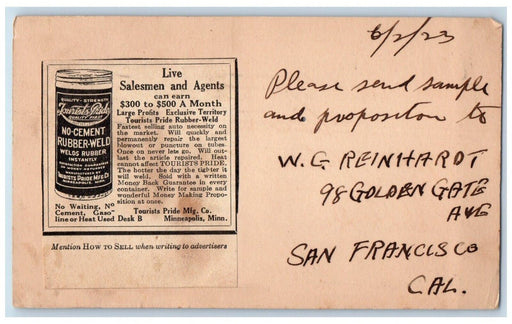 6/2/23
Please send sample
and propositon to
W. G REINHARDT
98 GOLDEN GATE
AVE
SAN FRANCISCO
CAL.
QUALITY - STRENGTH
Tourists Pride
NO-CEMENT
RUBBER-WELD
WELDS RUBBER
INSTANTLY
MANUFACTURED BY
TOURISTS PRIDE MFG CO
MINNEAPOLIS, MINN.
No Waiting, No
Cement, Gaso-
line or Heat Used
Live
Salesmen and Agents
can earn
$300 to $500 A Month
Large Profits Exclusive Territory
Tourists Pride Rubber-Weld
Fastest selling auto necessity on
the market. Will quickly and
permanently repair the largest
blowout or puncture on tubes.
Once on never lets go. Will out-
last the article repaired. Heat
cannot affect TOURISTS PRIDE.
The hotter the day the tighter it
will weld. Sold with a written
Money Back Guarantee in every
container. Write for sample and
wonderful Money Making Propo-
sition at once.
Tourists Pride Mfg. Co.
Desk B Minneapolis, Minn.
Mention HOW TO SELL when writing to advertisers